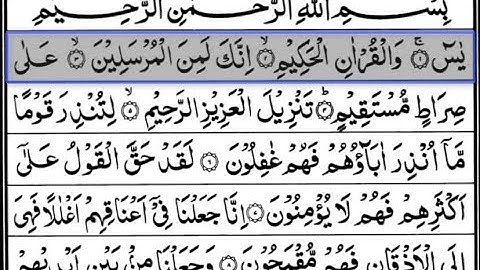 بِسْمِ اللّٰهِ الرَّحْمٰنِ الرَّحِيْمِ
يٰسٓ ۚ﴿۱﴾ وَالْقُرْاٰنِ الْحَكِيْمِ ۙ﴿۲﴾ اِنَّكَ لَمِنَ الْمُرْسَلِيْنَ ۙ﴿۳﴾ عَلٰى
صِرَاطٍ مُّسْتَقِيْمٍ ؕ﴿۴﴾ تَنْزِيْلَ الْعَزِيْزِ الرَّحِيْمِ ۙ﴿۵﴾ لِتُنْذِرَ قَوْمًا
مَّاۤ اُنْذِرَ اٰبَآؤُهُمْ فَهُمْ غٰفِلُوْنَ ﴿۶﴾ لَقَدْ حَقَّ الْقَوْلُ عَلٰٓى
اَكْثَرِهِمْ فَهُمْ لَا يُؤْمِنُوْنَ ﴿۷﴾ اِنَّا جَعَلْنَا فِيْۤ اَعْنَاقِهِمْ اَغْلٰلًا فَهِيَ
اِلَى الْاَذْقَانِ فَهُمْ مُّقْمَحُوْنَ ﴿۸﴾ وَجَعَلْنَا مِنْۢ بَيْنِ اَيْدِيْهِمْ